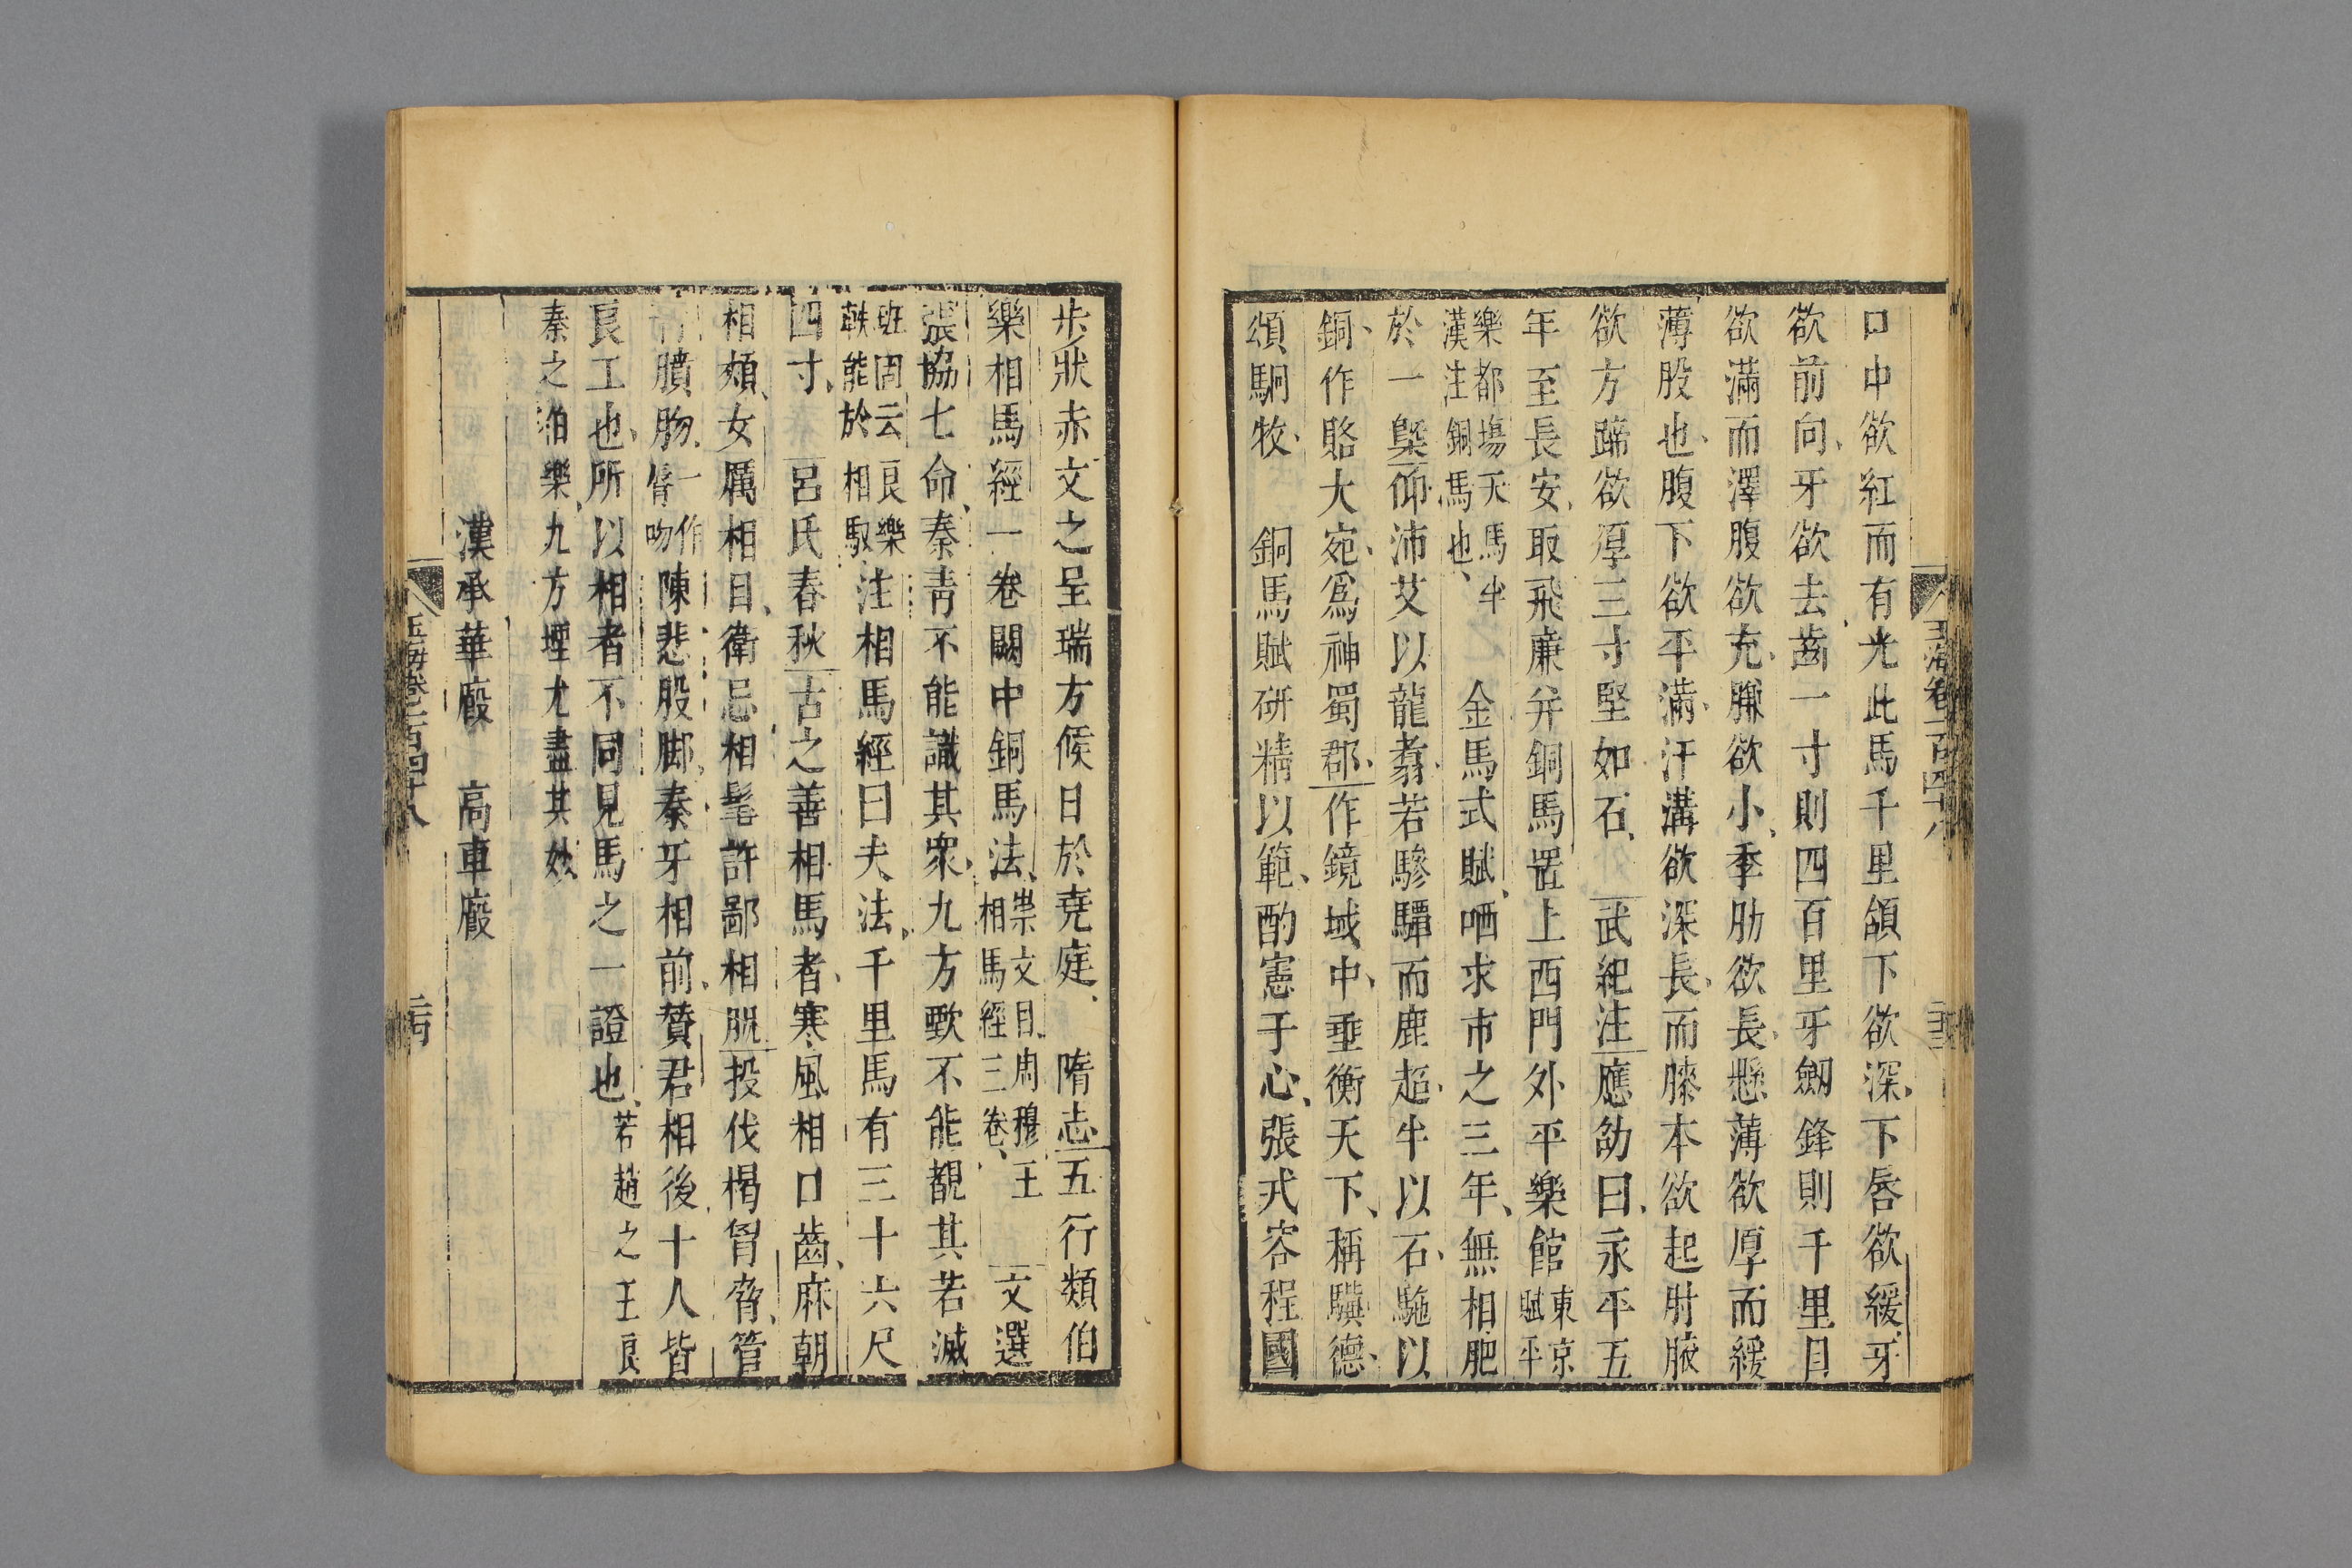 玉海卷一百四十八
口中欲紅而有光此馬千里頷下欲深下唇欲緩牙
欲前向牙欲去齒一寸則四百里牙劒鋒則千里目
欲滿而澤腹欲充膁欲小季肋欲長懸薄欲厚而緩
薄股也腹下欲平滿汗溝欲深長而膝本欲起肘腋
欲方蹄欲厚三寸堅如石 武紀注應劭曰永平五
年至長安取飛廉并銅馬置上西門外平樂館東京賦平
樂都塲天馬半漢注銅馬也 金馬式賦哂求市之三年無相肥
於一槩仰沛艾以龍翥若驂驔而鹿超牛以石駞以
銅作賂大宛爲神蜀郡作鏡域中垂衡天下稱驥德
頌駉牧 銅馬賦研精以範酌憲于心張式容程國
步狀赤文之呈瑞方候日於堯庭 隋志五行類伯
樂相馬經一卷闕中銅馬法崇文目周穆王相馬經三卷 文選
張協七命秦青不能識其衆九方歅不能覩其若滅
班固云良樂軼能於相馭注相馬經曰夫法千里馬有三十六尺
四寸 呂氏春秋古之善相馬者寒風相口齒麻朝
相頰女厲相目衛忌相髦許鄙相脫投伐褐胷脅管
青膹肳一作脣吻陳悲股脚秦牙相前贊君相後十人皆
良工也所以相者不同見馬之一證也若趙之王良
秦之伯樂九方堙尤盡其妙
漢承華廄 高車廄
玉海卷一百四十八